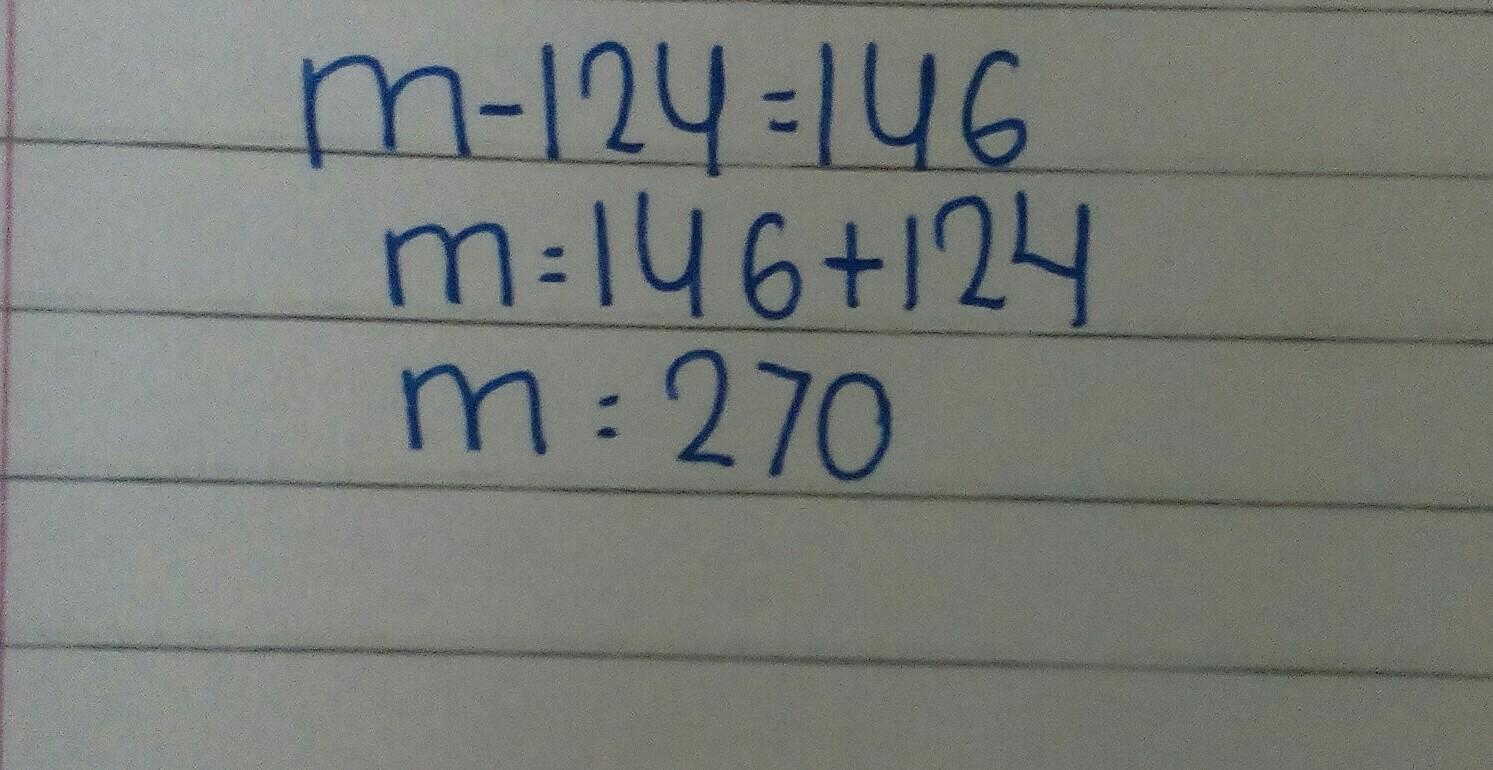 m-124=146
m=146+124
m=270